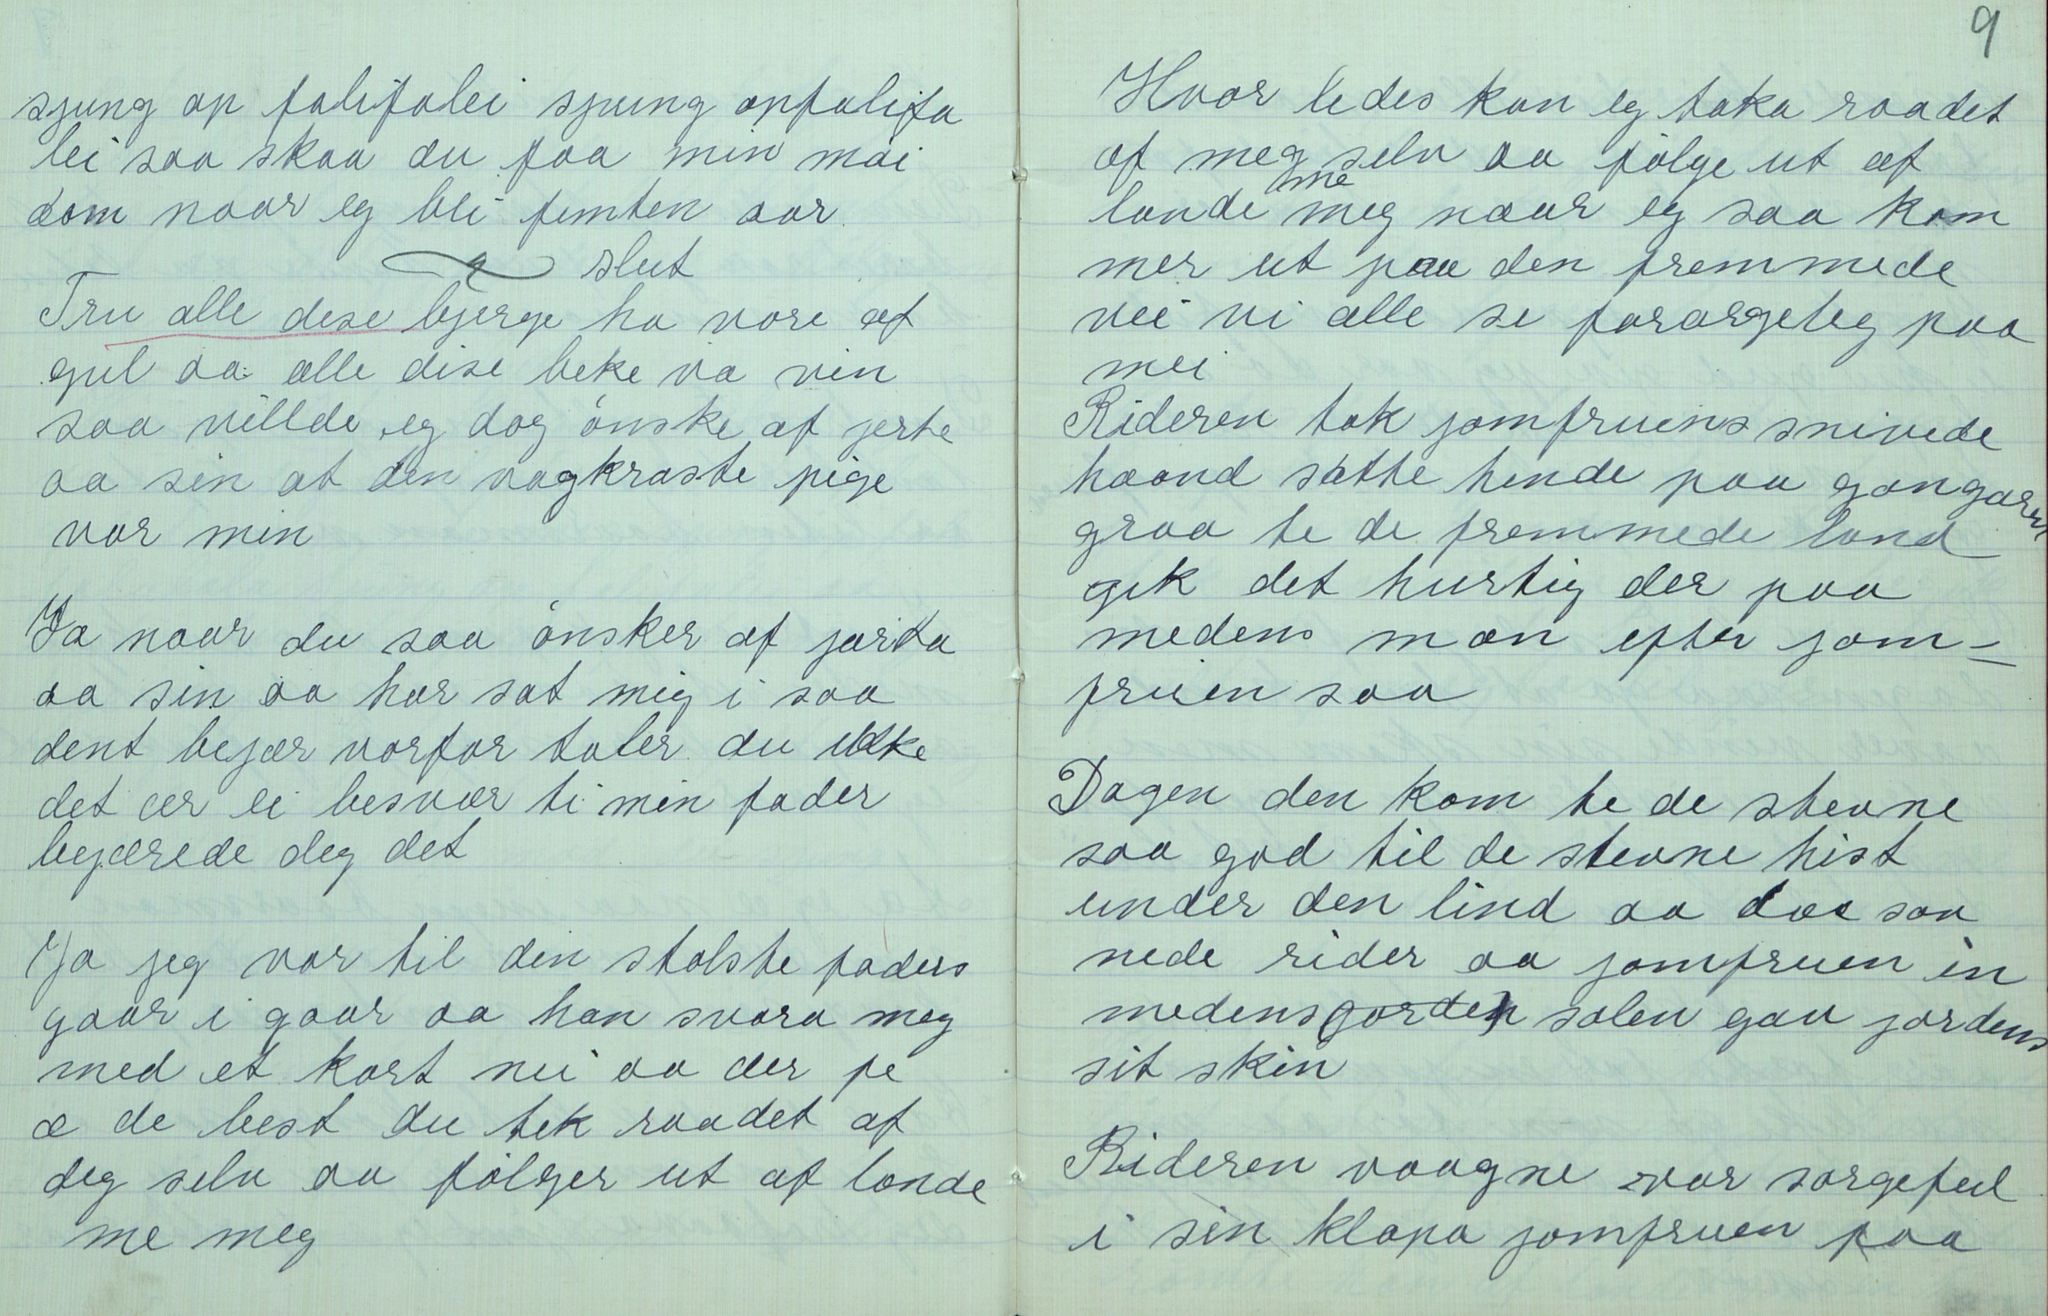 sjung op falifalei sjung opfalifa
lei saa skaa du faa min møi
dom naar eg bli femten aar
slut
Tru alle dese bjerge ha vore af
gul aa alle dise beke va vin
saa villde eg dog ønske af jerte
aa sin at den vagkraste pige
var min
Ja naar du saa ønsker af jarta
aa sin aa har sat mig i saa
dent bejær vorfor taler du ikke
det ær ei besvær ti min fader
bejærede deg det
Ja jeg var til din stolste faders
gaar i gaar aa han svara meg
med et kort nei aa der fe
æ de best du tek raadet af
deg selv aa følger ut af lande
me meg
9
Hvor ledes kan eg taka raadet
af meg selv aa følge ut af
lande me meg naar eg saa kom
mer ut paa den fremmede
vei vi alle se forargeleg paa
mei
Rideren tok jomfruens snivede
haand satte hende paa gangaren
graa te de fremmede land
gik det hurtig der paa
medens man efter jom-
fruen saa
Dagen den kom te de stevne
saa god til de stevne hist
under den lind aa saa
nede rider aa jomfruen in
medens jorden solen gav jordens
sit skin
Rideren vaagne var sorgeful
i sin klapa jomfruen paa